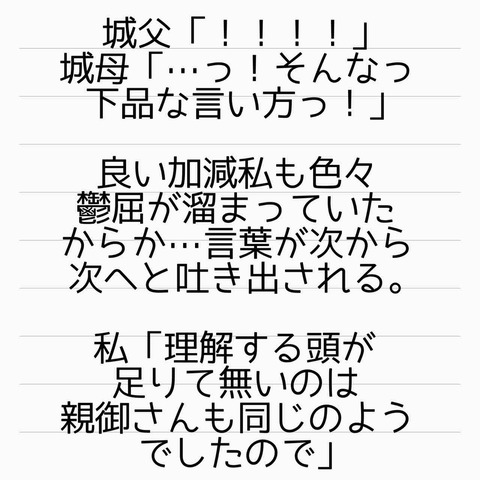 城父「！！！！」
城母「…っ！そんなっ
下品な言い方っ！」
良い加減私も色々
鬱屈が溜まっていた
からか…言葉が次から
次へと吐き出される。
私「理解する頭が
足りて無いのは
親御さんも同じのよう
でしたので」